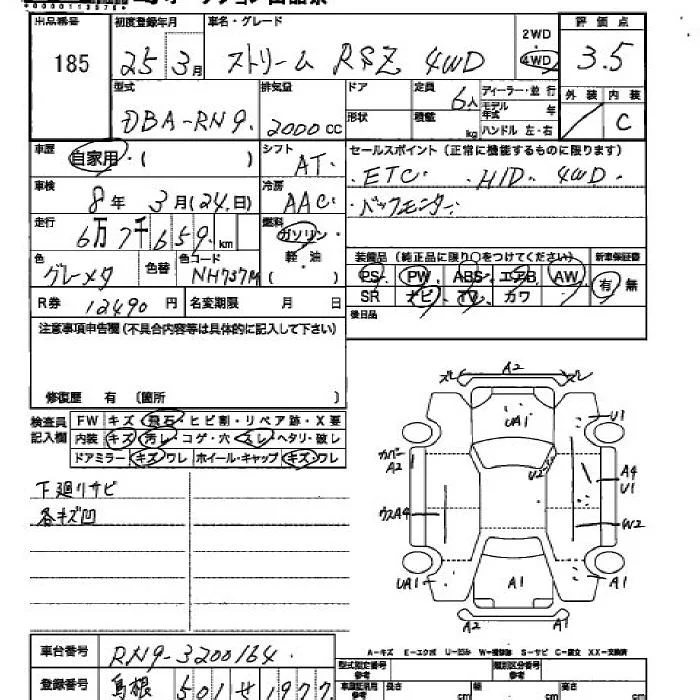 出品番号 初度登録年月 車名・グレード 2WD 評価点
185 25 3月 ストリーム RSZ 4WD 4WD 3.5
型式 排気量 ドア 定員 ディーラー・並行 外装 内装
DBA-RN9. 2000cc 6人 モデル年式 年 C
形状 積載 kg ハンドル 左・右
車歴 自家用・( ) シフト AT. セールスポイント (正常に機能するものに限ります)
車検 8年 3月(24.日) 冷房 AAC ・ETC ・HID 4WD・
・バックモニター・
走行 6万7千659.km 燃料 ガソリン・
軽・油
( )
色 グレーメタ 色替 色コード NH737M 装備品 (純正品に限り○をつけてください) 新車保証書
PS PW ABS エアB AW 有・無
R券 12490円 名変期限 月 日 SR ナビ TV カワ
注意事項申告欄(不具合内容等は具体的に記入して下さい) 後日品
修復歴 有 〔箇所 〕
検査員記入欄 FW キズ・飛石・ヒビ割・リペア跡・X要
内装 キズ・汚レ・コゲ・穴・スレ・ヘタリ・破レ
ドアミラー キズ・ワレ ホイール・キャップ キズ・ワレ
下廻りサビ
各キズ凹
A2
UA1 U1
カバーA2 U2 A4
U1
ウスA4 W2
UA1 A1 A1
A1
A-キズ E-エクボ U-凹み W-補修跡 S-サビ C-腐食 XX-交換済
車台番号 RN9-3200164. 型式指定番号 参考 類別区分番号 参考
登録番号 島根 501せ1977 長さ cm 幅 cm 高さ cm